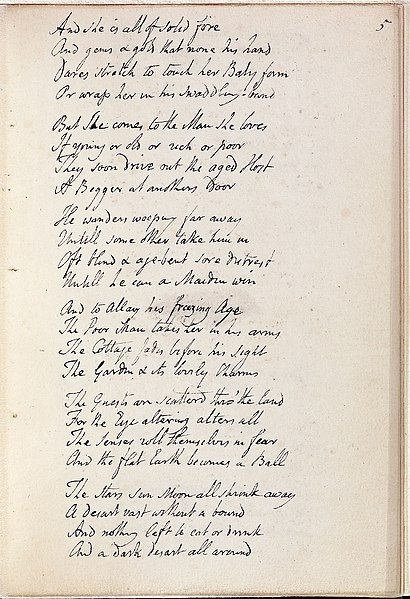 5
And she is all of solid fire
And gems & gold that none his hand
Dares stretch to touch her Baby form
Or wrap her in his swaddling-band
But She comes to the Man she loves
If young or old or rich or poor
They soon drive out the aged Host
A Begger at anothers Door
He wanders weeping far away
Untill some other take him in
Oft blind & age-bent sore distrest
Untill he can a Maiden win
And to Allay his freezing Age
The Poor Man takes her in his arms
The Cottage fades before his Sight
The Garden & its lovely Charms
The Guests are scatterd thro' the land
For the Eye altering alters all
The Senses roll themselves in fear
And the flat Earth becomes a Ball
The Stars Sun Moon all shrink away
A desart vast without a bound
And nothing left to eat or drink
And a dark desart all around